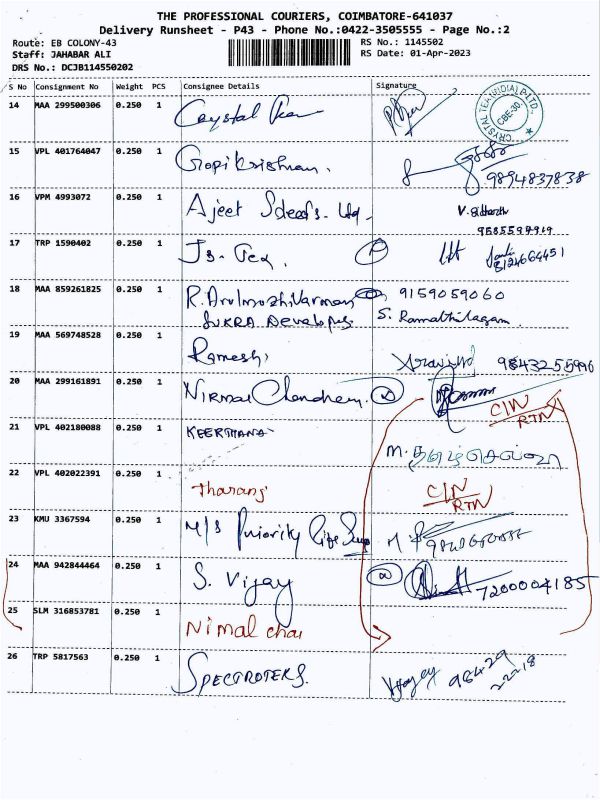 THE PROFESSIONAL COURIERS, COIMBATORE-641037
Delivery Runsheet - P43 - Phone No.:0422-3505555 - Page No.:2
Route: EB COLONY-43
RS No.: 1145502
Staff: JAHABAR ALI
RS Date: 01-Apr-2023
DRS No.: DCJB114550202
S No Consignment No Weight PCS Consignee Details Signature
14 MAA 299500306 0.250 1 Crystal
CRYSTAL TEA (INDIA) P. LTD. CBE-30.
15 VPL 401764047 0.250 1 Gopikrishnan. 9894837838
16 VPM 4993072 0.250 1 Ajeet Ltd
17 TRP 1590402 0.250 1 Js. Tex. 8124664451
18 MAA 859261825 0.250 1 R. Arulmozhivarman 9159059060
SUKRA Developers S. Ramathilagam.
19 MAA 569748528 0.250 1 Ramesh Aravind 9843255996
20 MAA 299161891 0.250 1 Nirmal C/N
RTN
21 VPL 402180088 0.250 1 KEERTHANA
M. தமிழ்செல்வி
22 VPL 402022391 0.250 1 Tharang C/N
RTN
23 KMU 3367594 0.250 1 M/S Priority Life
24 MAA 942844464 0.250 1 S. Vijay 7200004185
25 SLM 316853781 0.250 1 Nimal chan
26 TRP 5817563 0.250 1 SPECTROTEKS. Vijay 98429
22218